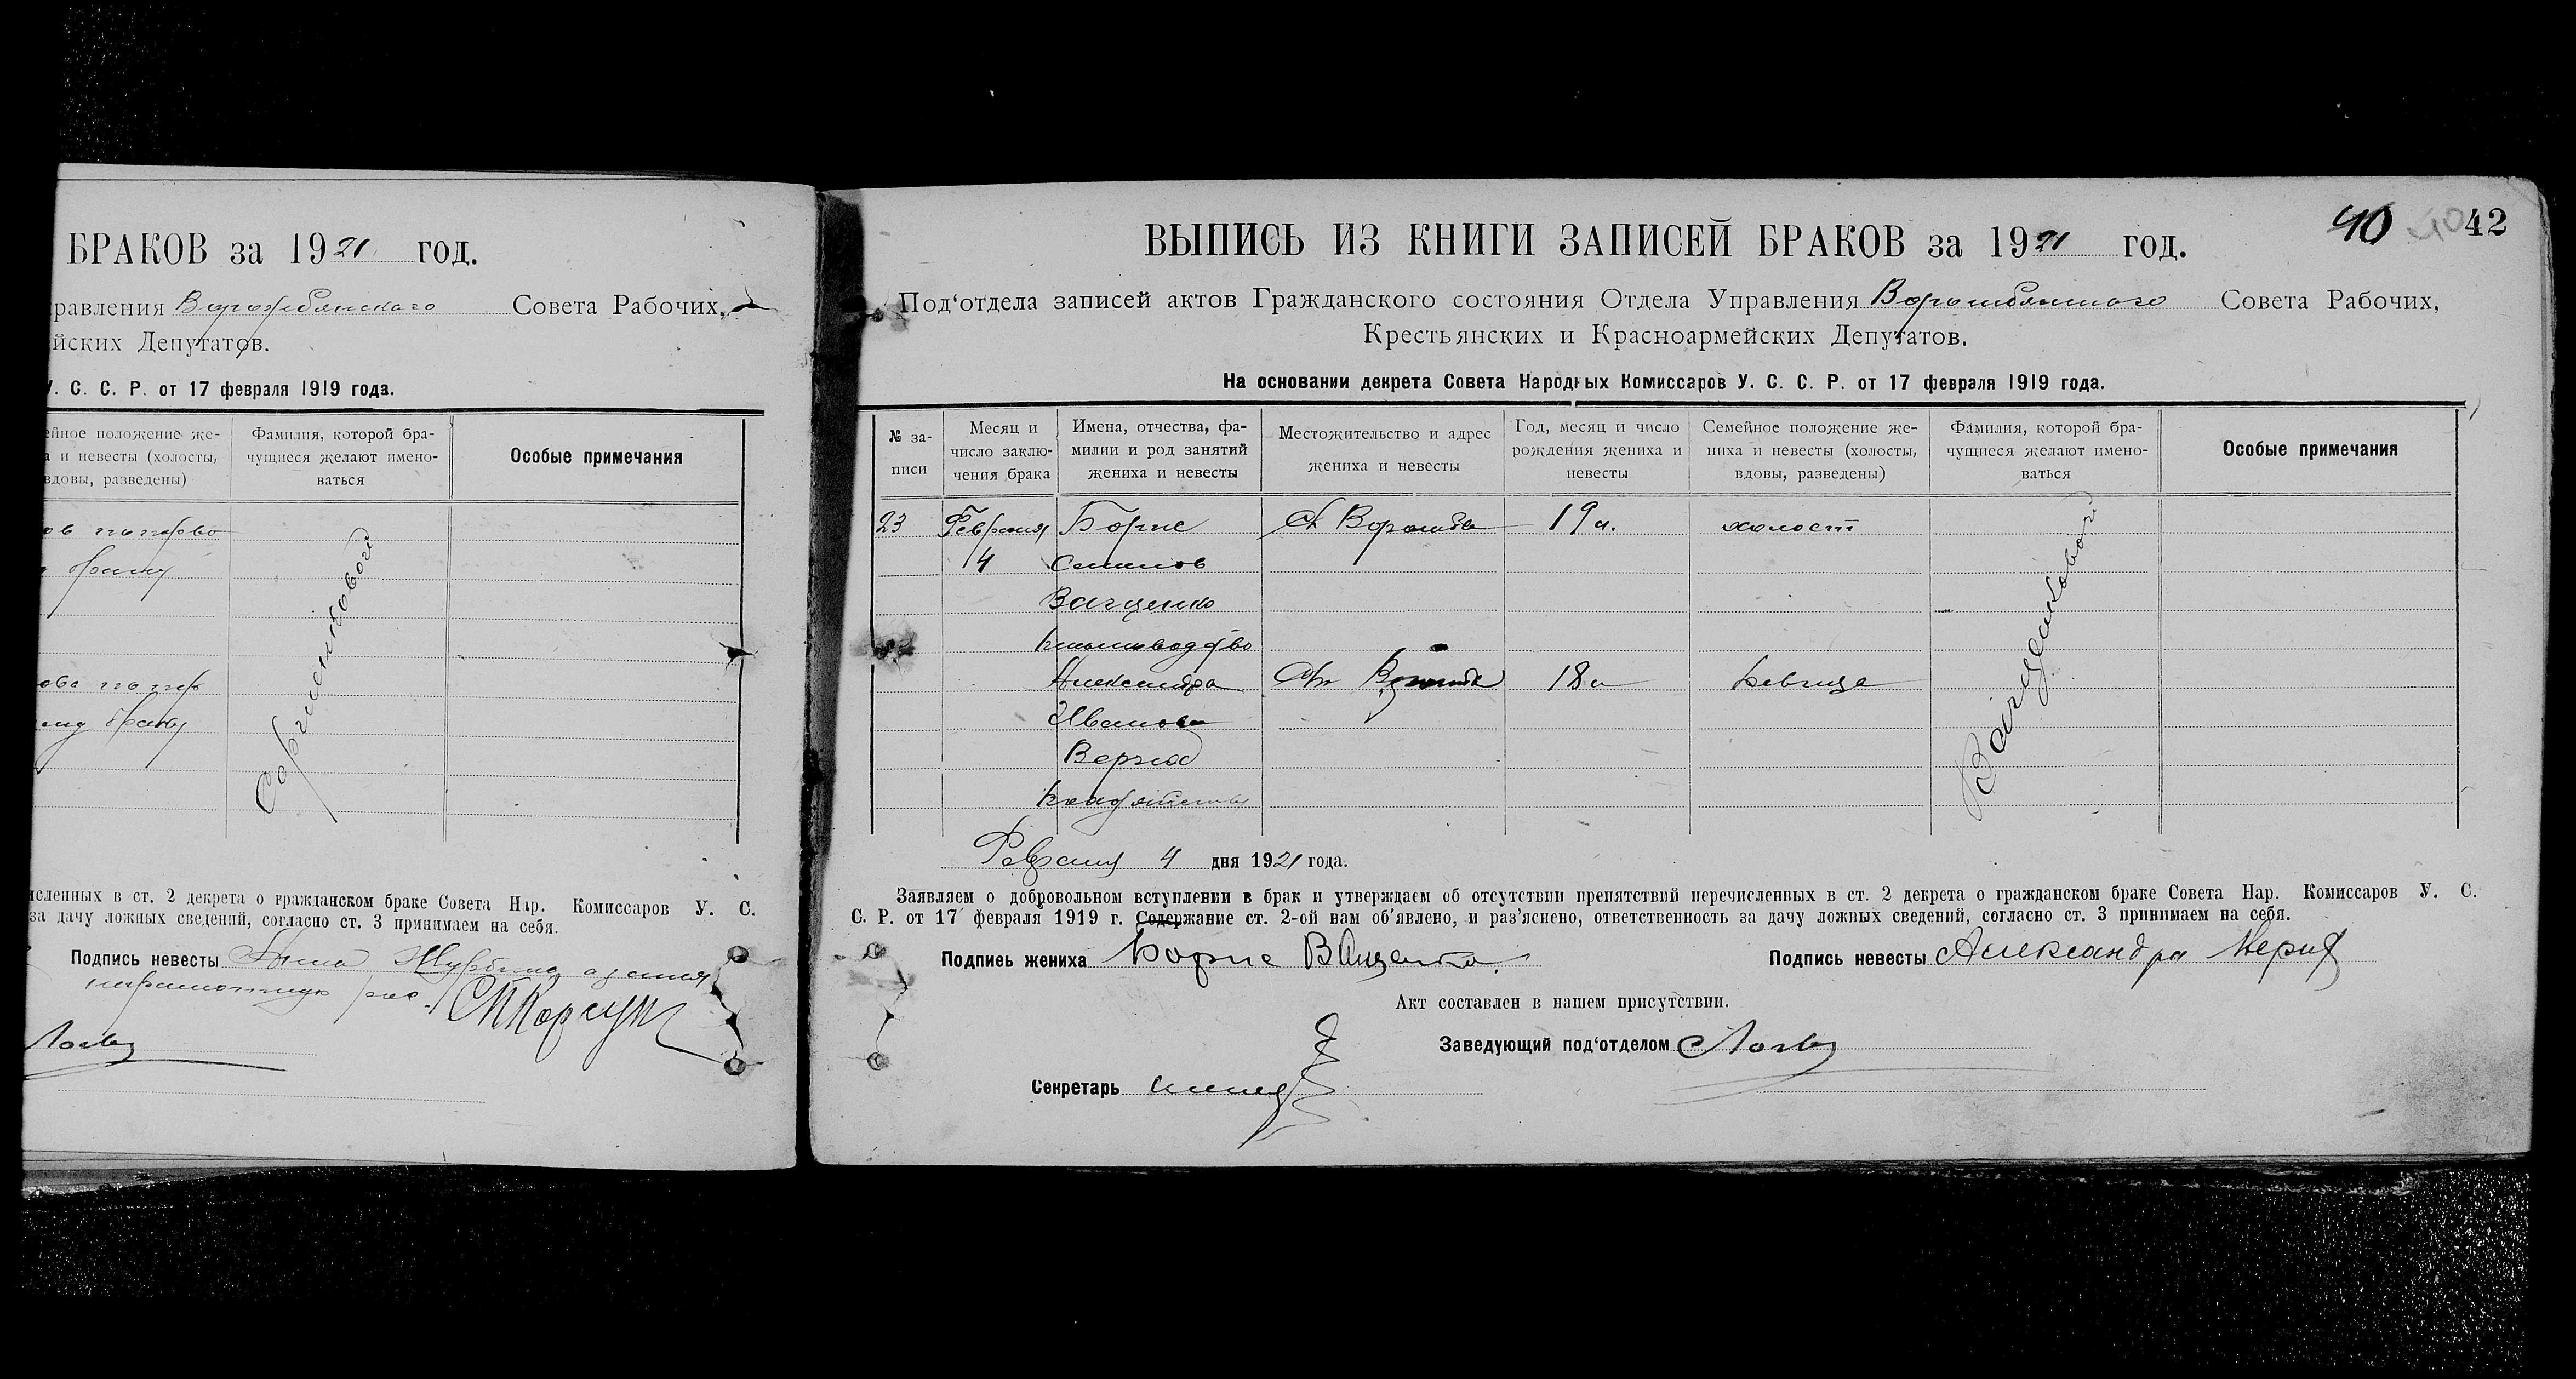 БРАКОВ за 1921 год.
равления Ворожбянского Совета Рабочих,
йских Депутатов.
У. С. С. Р. от 17 февраля 1919 года.
ейное положение же-
а и невесты (холосты,
вдовы, разведены)
Фамилия, которой бра-
чущиеся желают имено-
ваться
Особые примечания
браку
браку
исленных в ст. 2 декрета о гражданском браке Совета Нар. Комиссаров У. С.
за дачу ложных сведений, согласно ст. 3 принимаем на себя.
Подпись невесты Анна
40 40 42
ВЫПИСЬ ИЗ КНИГИ ЗАПИСЕЙ БРАКОВ за 1921 год.
Под‘отдела записей актов Гражданского состояния Отдела Управления Ворожбянского Совета Рабочих,
Крестьянских и Красноармейских Депутатов.
На основании декрета Совета Народных Комиссаров У. С. С. Р. от 17 февраля 1919 года.
№ за-
писи
Месяц и
число заклю-
чения брака
Имена, отчества, фа-
милии и род занятий
жениха и невесты
Местожительство и адрес
жениха и невесты
Год, месяц и число
рождения жениха и
невесты
Семейное положение же-
ниха и невесты (холосты,
вдовы, разведены)
Фамилия, которой бра-
чущиеся желают имено-
ваться
Особые примечания
23 Февраля Борис Ст Ворожба 19 л. холост
4
Ващенко
Александра Ворожба 18 л девица
Иванова
Ващенковой
Февраля 4 дня 1921 года.
Заявляем о добровольном вступлении в брак и утверждаем об отсутствии препятствий перечисленных в ст. 2 декрета о гражданском браке Совета Нар. Комиссаров У. С.
С. Р. от 17 февраля 1919 г. Содержание ст. 2-ой нам об’явлено, и раз’яснено, ответственность за дачу ложных сведений, согласно ст. 3 принимаем на себя.
Подпись жениха Борис Ващенко
Подпись невесты Александра
Акт составлен в нашем присутствии.
Заведующий под‘отделом
Секретарь